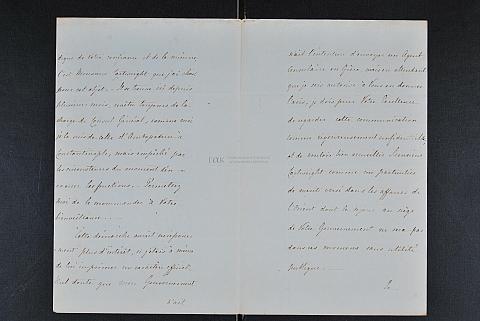 digne de Votre confiance et de la mienne.
C'est Monsieur Cartwright que j'ai choisi
pour cet objet. Nommé depuis
plusieurs mois, toujours de la
charge de Consul Général, comme moi
je le suis de celle d'Ambassadeur à
Constantinople, mais empêché par
les circonstances du moment d'en
exercer les fonctions. Permettez
moi de le recommander à Votre
bienveillance.
Cette démarche aurait
plus d'intérêt, si j'étais à même
de lui imprimer un caractère officiel.
Nul doute que mon Gouvernement
n'ait
n'ait l'intention d'envoyer un Agent
Consulaire en Grèce, mais en attendant
que je sois autorisé à vous en donner
l'avis, je dois prier Votre Excellence
de regarder cette communication
comme rigoureusement confidentielle
et de vouloir bien accueillir Monsieur
Cartwright comme un particulier
versé dans les affaires de
l'Orient dont le séjour au siège
de Votre Gouvernement ne sera pas
sans utilité
publique.
Je